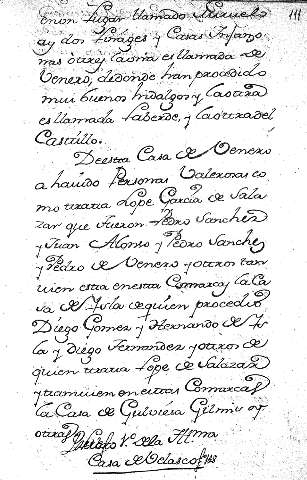 en un Lugar llamado
ay dos linages y Casas Infanzo
nas otrey la una es llamada de
Venero, de donde han procedido
mui buenos Hidalgos y la otra
es llamada Laberde, y la otra del
Castillo.
De esta Casa de Venero
a havido Personas Valerosas co
mo trata Lope Garcia de Sala
zar que fueron Pedro Sanchez
y Juan Alonso y Pedro Sanchez
y Pedro de Venero y otros tan
vien esta en esta Comarca la Ca
sa de Isla de quien procedio
Diego Gomez y Hernando de Is
la y Diego Fernandez y otros de
quien trata Lope de Salazar
y tamvien en estas Comarcas
la Casa de
otras
Casa de Velasco